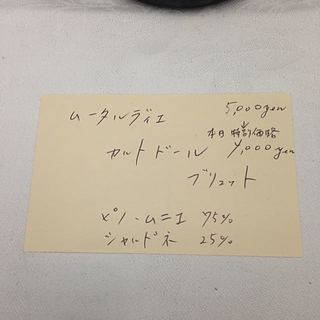 ムータルディエ 5,000yen
↓
本日 特別価格
カルトドール 4,000yen
ブリュット
ピノ・ムニエ 75%
シャルドネ 25%